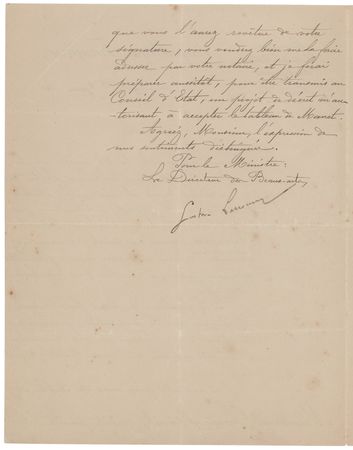 que vous l'aurez revêtue de votre
signature, vous voudrez bien me la faire
adresser par votre notaire, et je ferai
préparer aussitôt, pour être transmis au
Conseil d'Etat, un projet de décret m'au-
torisant à accepter le tableau de Manet.
Agréez, Monsieur, l'expression de
mes sentiments distingués.
Pour le Ministre:
Le Directeur des Beaux-arts,
Gustave Larroumet